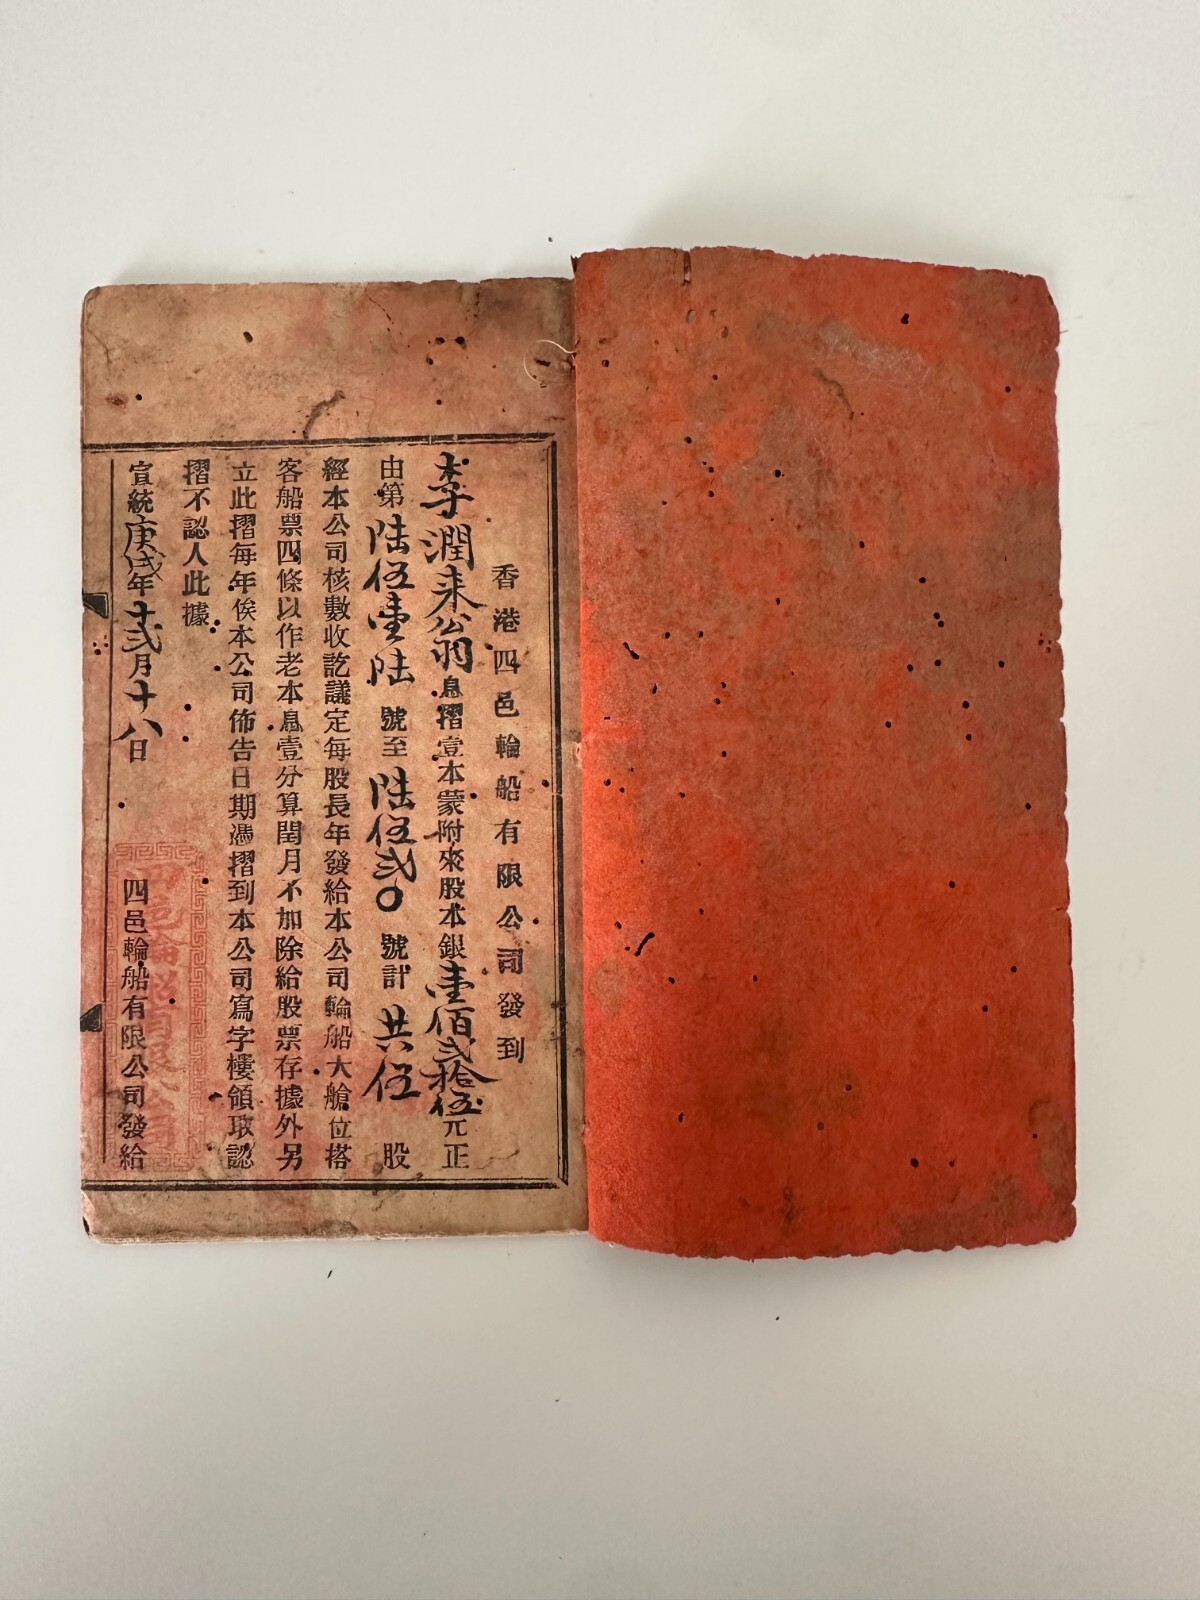 香港四邑輪船有限公司發到
李潤来公翁息摺壹本蒙附來股本銀壹佰弍拾伍元正
由第陆伍壹陆號至陆伍弍0號計共伍股
經本公司核數收訖議定每股長年發給本公司輪船大艙位搭
客船票四條以作老本息壹分算閏月不加除給股票存據外另
立此摺每年俟本公司佈告日期憑摺到本公司寫字樓領取認
摺不認人此據
宣統庚戌年十弍月十八日 四邑輪船有限公司發給
四邑輪船有限公司